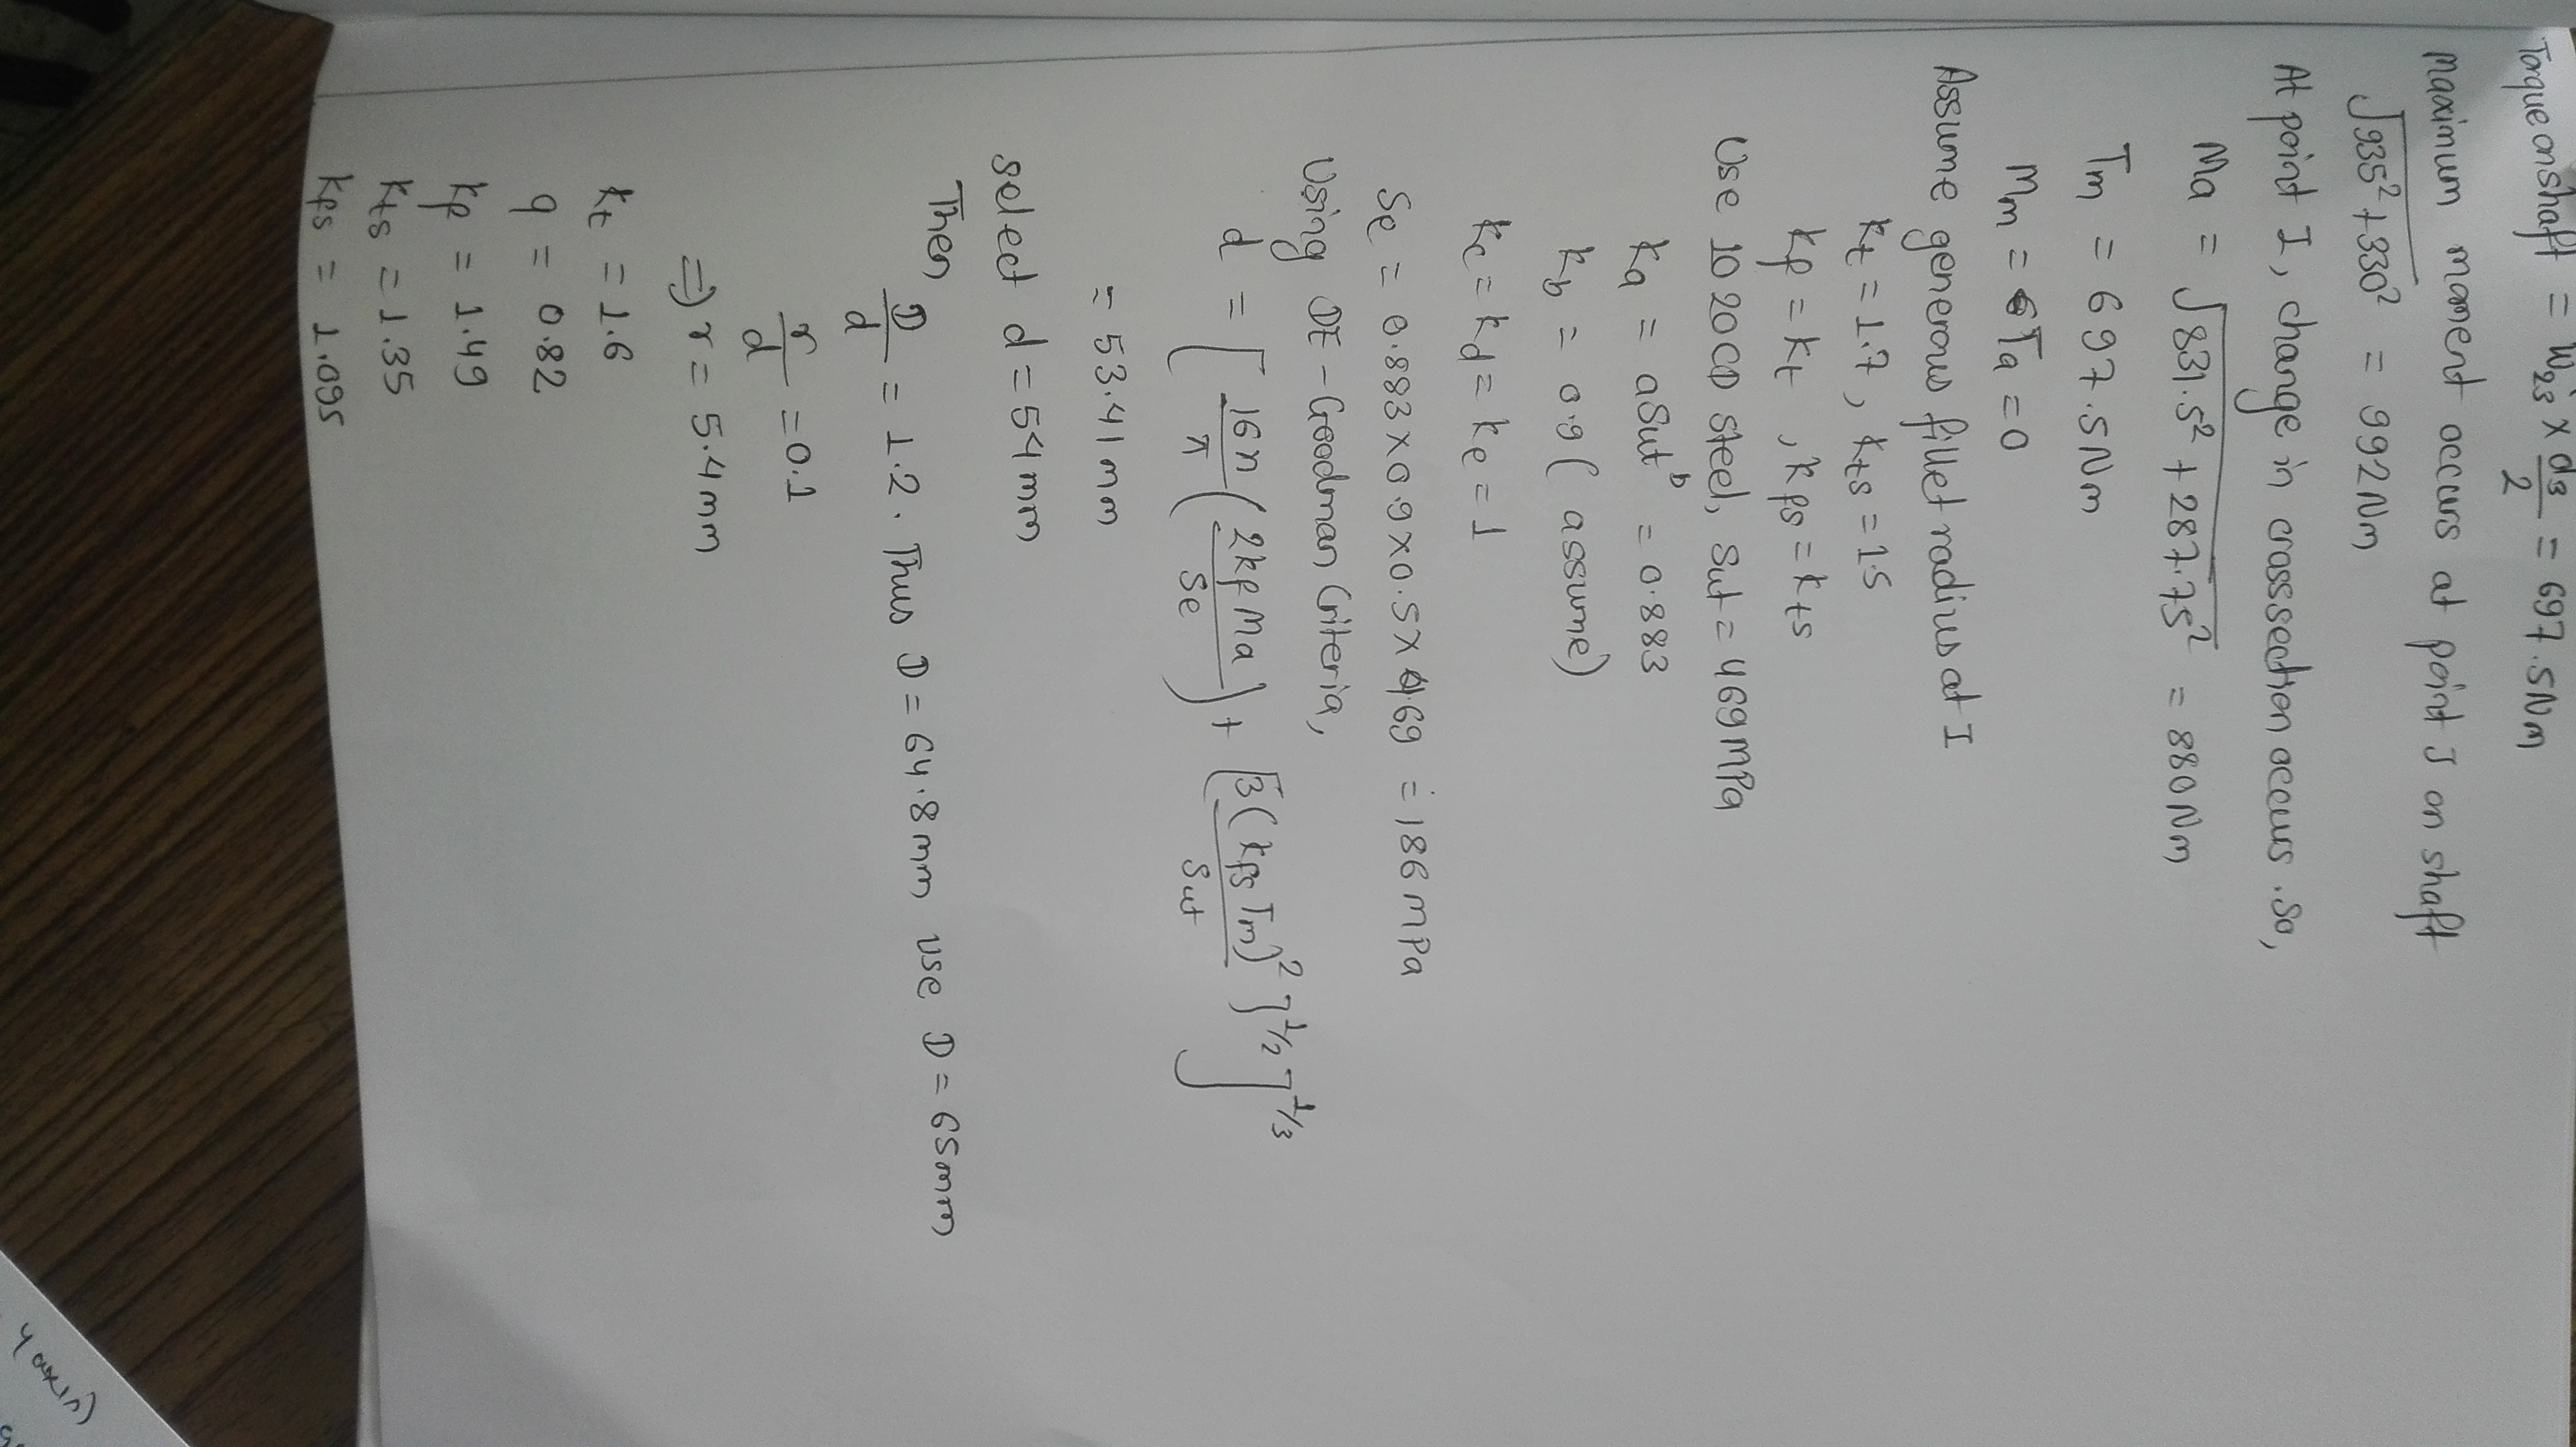 Torque on shaft = W₂₃ × d₃/2 = 697.5Nm
Maximum moment occurs at point J on shaft
√(935² + 330²) = 992Nm
At point I, change in crossection occurs. So,
Ma = √(831.5² + 287.75²) = 880Nm
Tm = 697.5Nm
Mm = Ta = 0
Assume generous fillet radius at I
kt = 1.7, kts = 1.5
kf = kt, kfs = kts
Use 1020CD steel, Sut = 469MPa
ka = aSut^b = 0.883
kb = 0.9 (assume)
kc = kd = ke = 1
Se = 0.883×0.9×0.5×469 = 186MPa
Using DE-Goodman Criteria,
d = [16n/π (2kfMa/Se) + [3(kfsTm)²/Sut]^1/2]^1/3
= 53.41mm
Select d = 54mm
Then, D/d = 1.2. Thus D = 64.8mm use D = 65mm
r/d = 0.1
⇒ r = 5.4mm
kt = 1.6
q = 0.82
kf = 1.49
kts = 1.35
kfs = 1.095